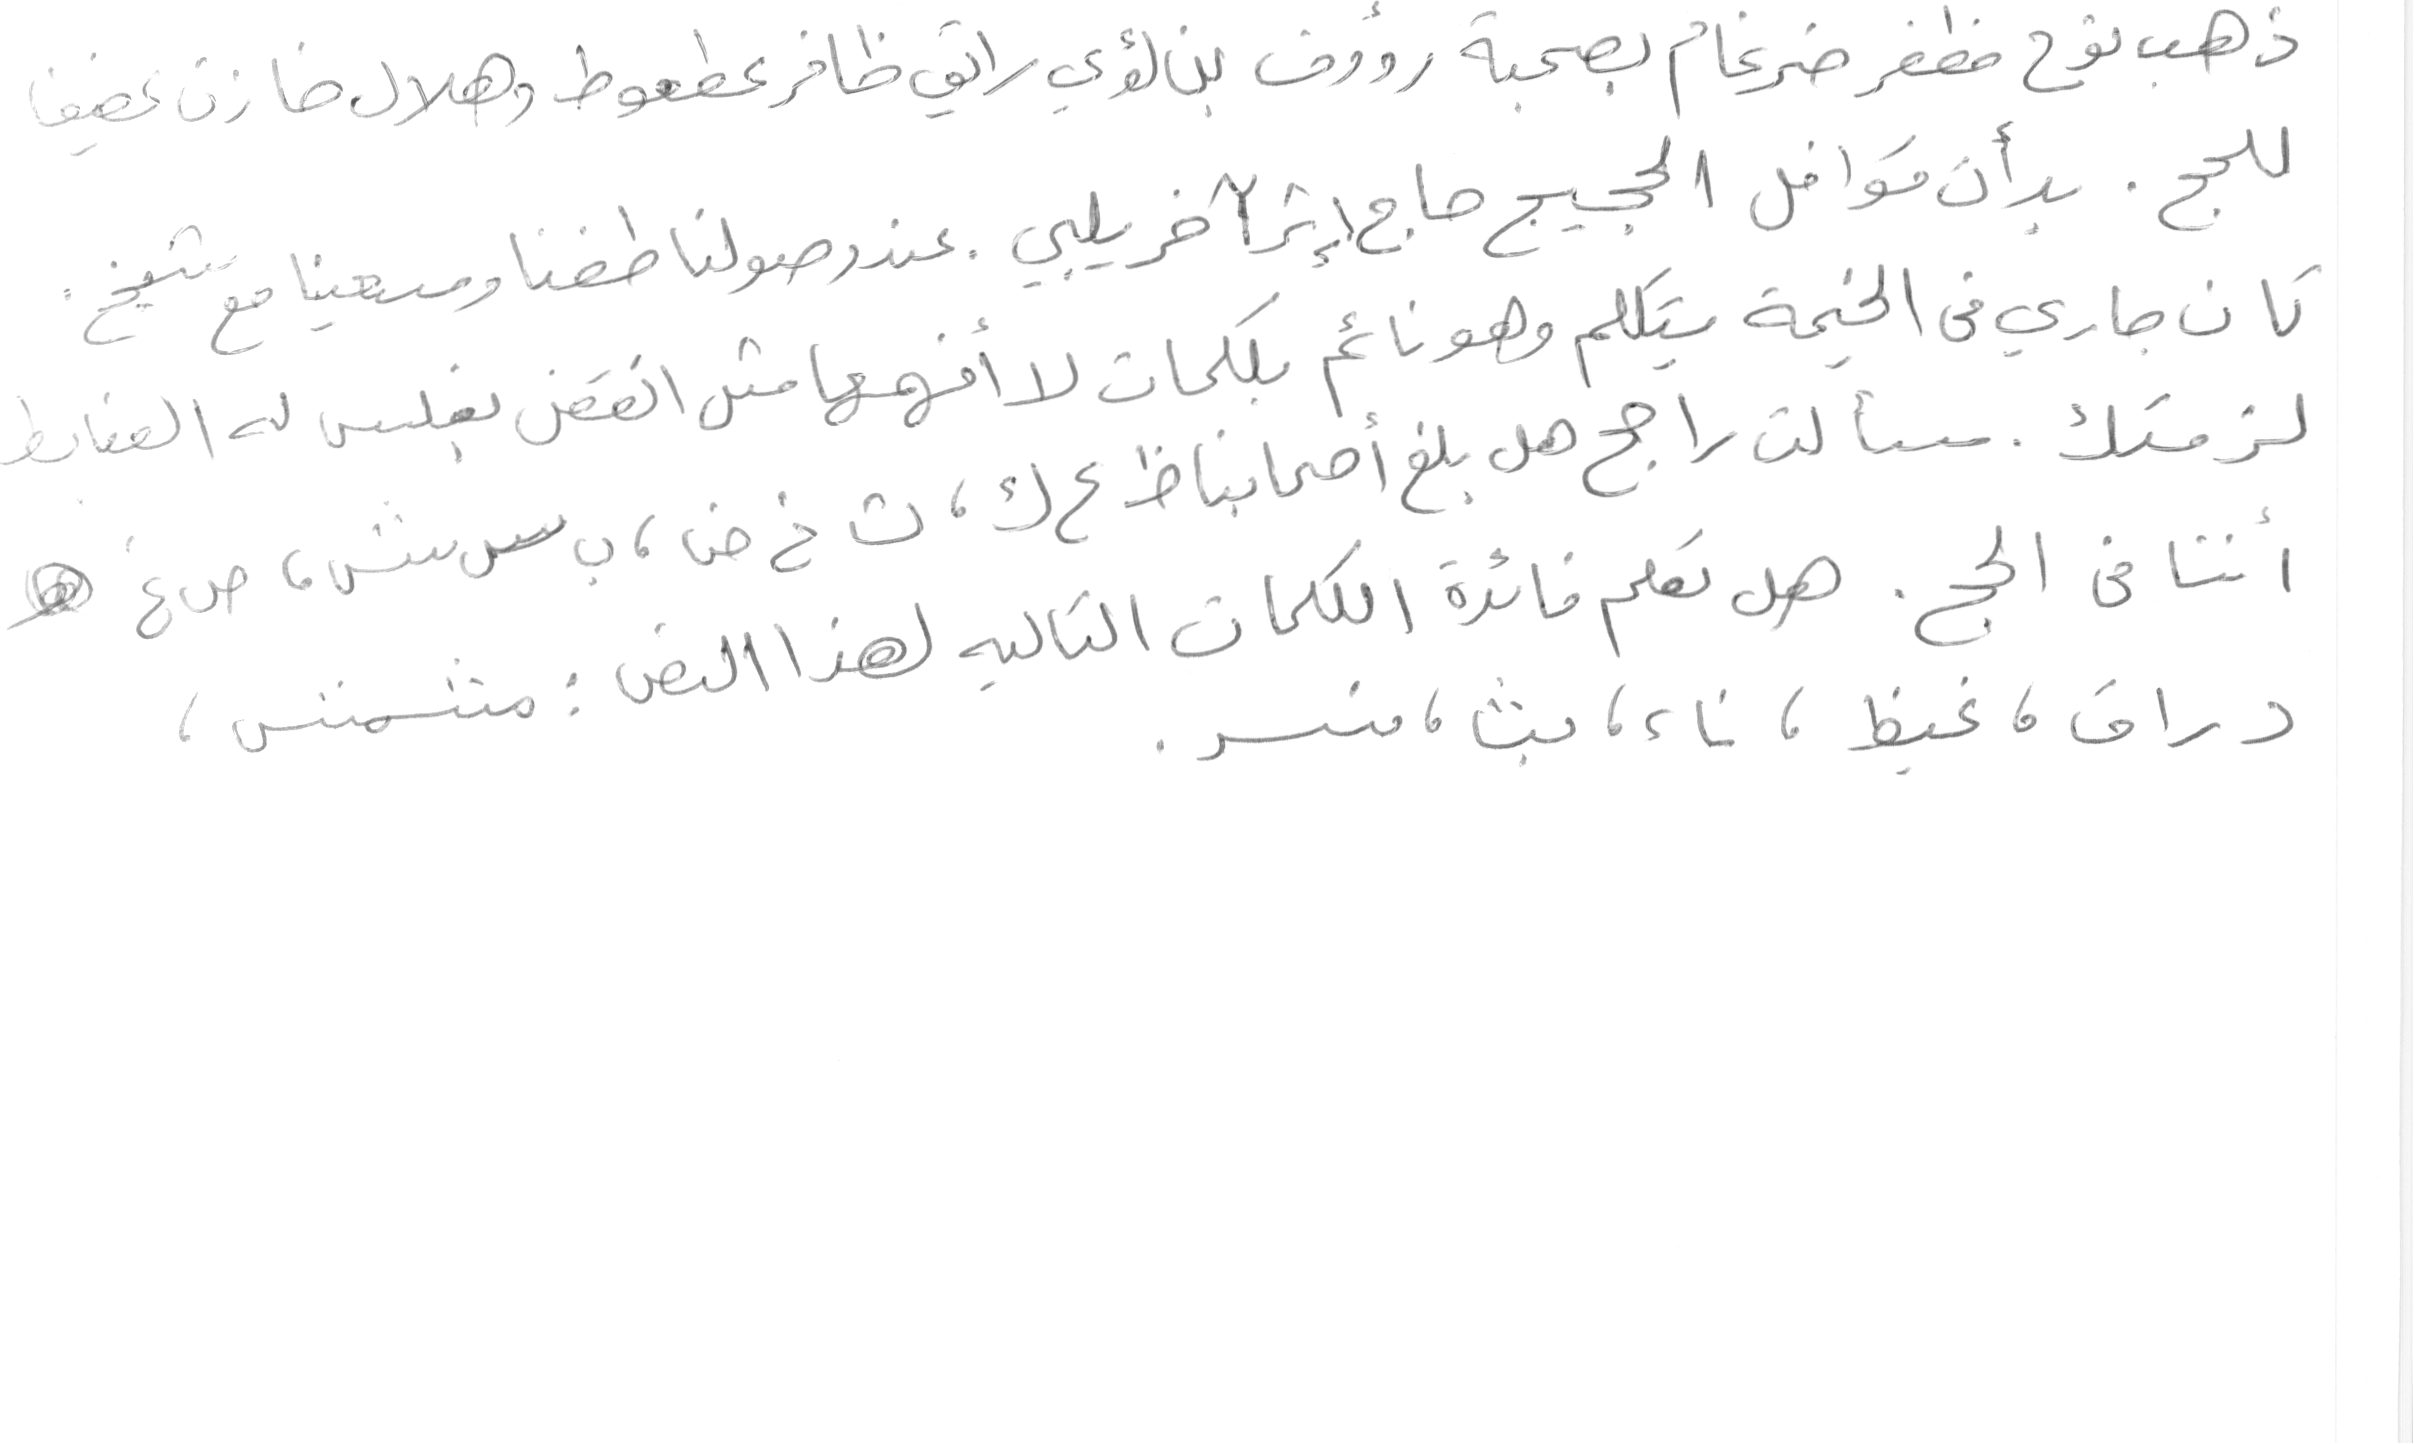 ذهب نوح مظفر ضرغام بصحبة رؤوف بن لؤي رائق ظافر عطعوط وهلال خازن غضيفا
للحج . بدأت قوافل الحجيج حاج إثر الآخر يلبي . عند وصولنا طفنا وسعينا مع شيخ .
كان جاري في الخيمة يتكلم وهو نائم بكلمات لا أفهمها مثل القصف بغلس له الضابط
لزمتك . سألت راجح هل بلغ أصحابنا ظ ع ك ، ث خ ض ، ب س ش ، ص غ ، ه
أننا في الحج . هل تعلم فائدة الكلمات التالية لهذا النص : مشمش ،
دراق ، غيظ ، ناء ، بث ، منسر .